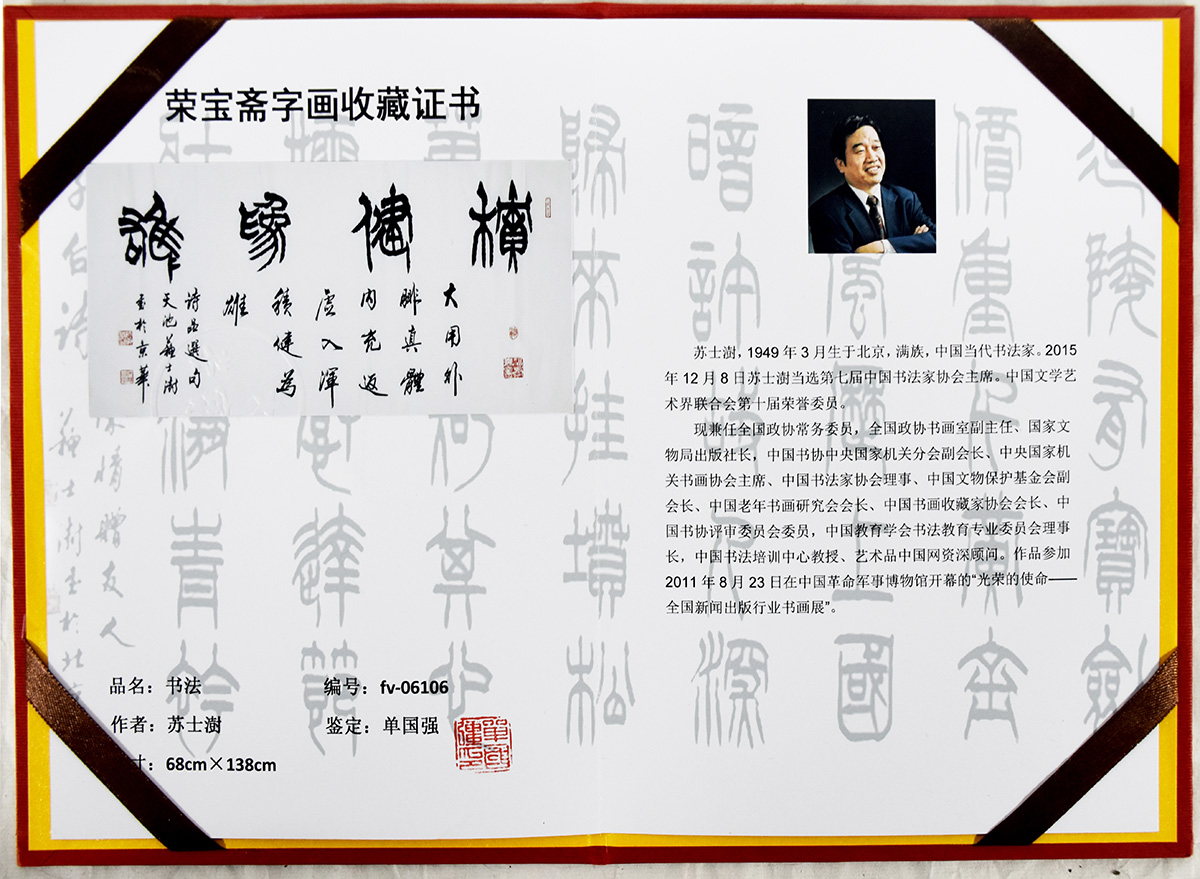 荣宝斋字画收藏证书
積健為雄
大用外
腓真體
内充返
虚入渾
積健為
雄
诗品選句
天池蘇士澍
書於京華
品名：书法
编号：fv-06106
作者：苏士澍
鉴定：单国强
寸：68cm×138cm
苏士澍，1949 年 3 月生于北京，满族，中国当代书法家。2015
年 12 月 8 日苏士澍当选第七届中国书法家协会主席。中国文学艺
术界联合会第十届荣誉委员。
现兼任全国政协常务委员，全国政协书画室副主任、国家文
物局出版社长，中国书协中央国家机关分会副会长、中央国家机
关书画协会主席、中国书法家协会理事、中国文物保护基金会副
会长、中国老年书画研究会会长、中国书画收藏家协会会长、中
国书协评审委员会委员，中国教育学会书法教育专业委员会理事
长，中国书法培训中心教授、艺术品中国网资深顾问。作品参加
2011 年 8 月 23 日在中国革命军事博物馆开幕的“光荣的使命——
全国新闻出版行业书画展”。
延陵有寶劍
價重千黄金
風歷上國
暗許故人深
歸來挂墳松
情贈友人
蘇士澍書於北京